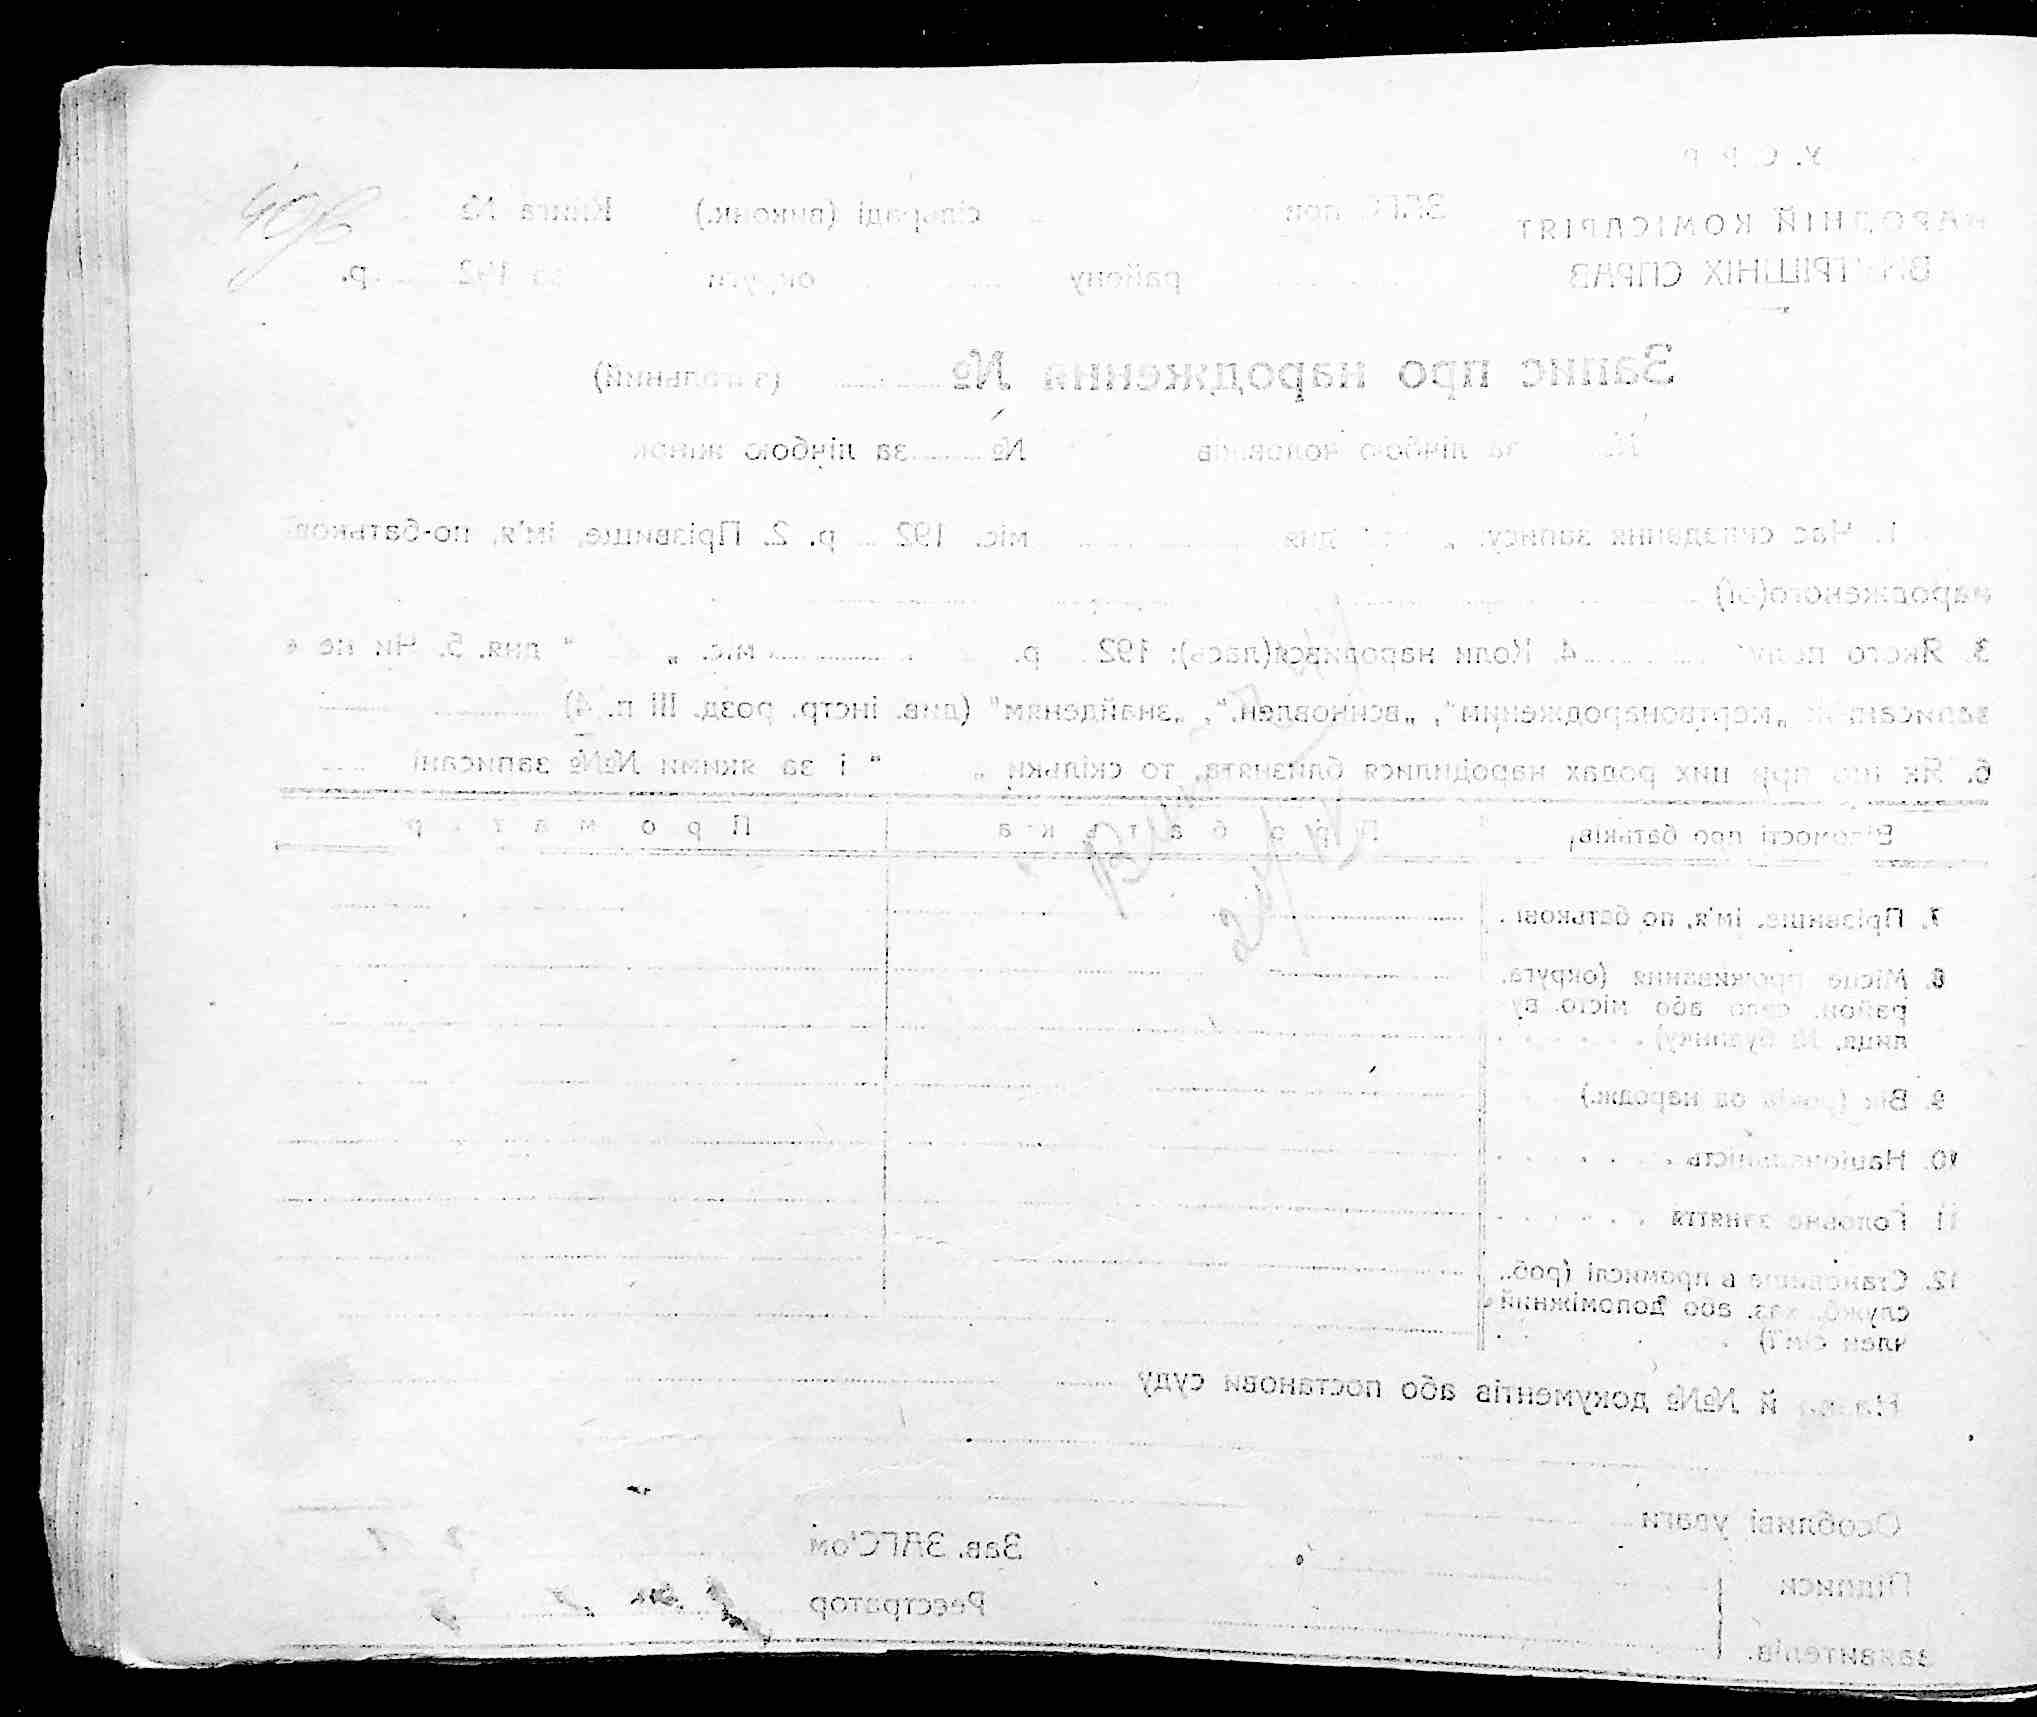 У. С. Р. Р.
НАРОДНІЙ КОМІСАРІЯТ
ВНУТРІШНІХ СПРАВ
ЗАГС при сільраді (виконк.) Книга №
району округи за 192 р.
Запис про народження № (загальний)
№ за лічбою чоловіків № за лічбою жінок
1. Час складення запису: „ “ дня міс. 192 р. 2. Прізвище, ім'я, по-батькові
народженого(ої)
3. Якого полу 4. Коли народився(лась): 192 р. міс. „ “ дня. 5. Чи не є
записаний „мертвонародженим“, „всиновлен.“, „знайденям“ (див. інстр. розд. III п. 4)
6. Як що при цих родах народилися близнята, то скільки „ “ і за якими №№ записані
Відомості про батьків, Про батька Про матір
7. Прізвище, ім'я, по батькові
8. Місце проживання (округа,
район, село або місто, ву
лиця, № будинку)
9. Вік (років од народж.)
10. Національність
11. Головне заняття
12. Становище в промислі (роб.,
служб., хаз. або допоміжний
член сім'ї)
Назва й №№ документів або постанови суду
Особливі уваги
Зав. ЗАГС'ом
Підписи
Реєстратор
заявителів.